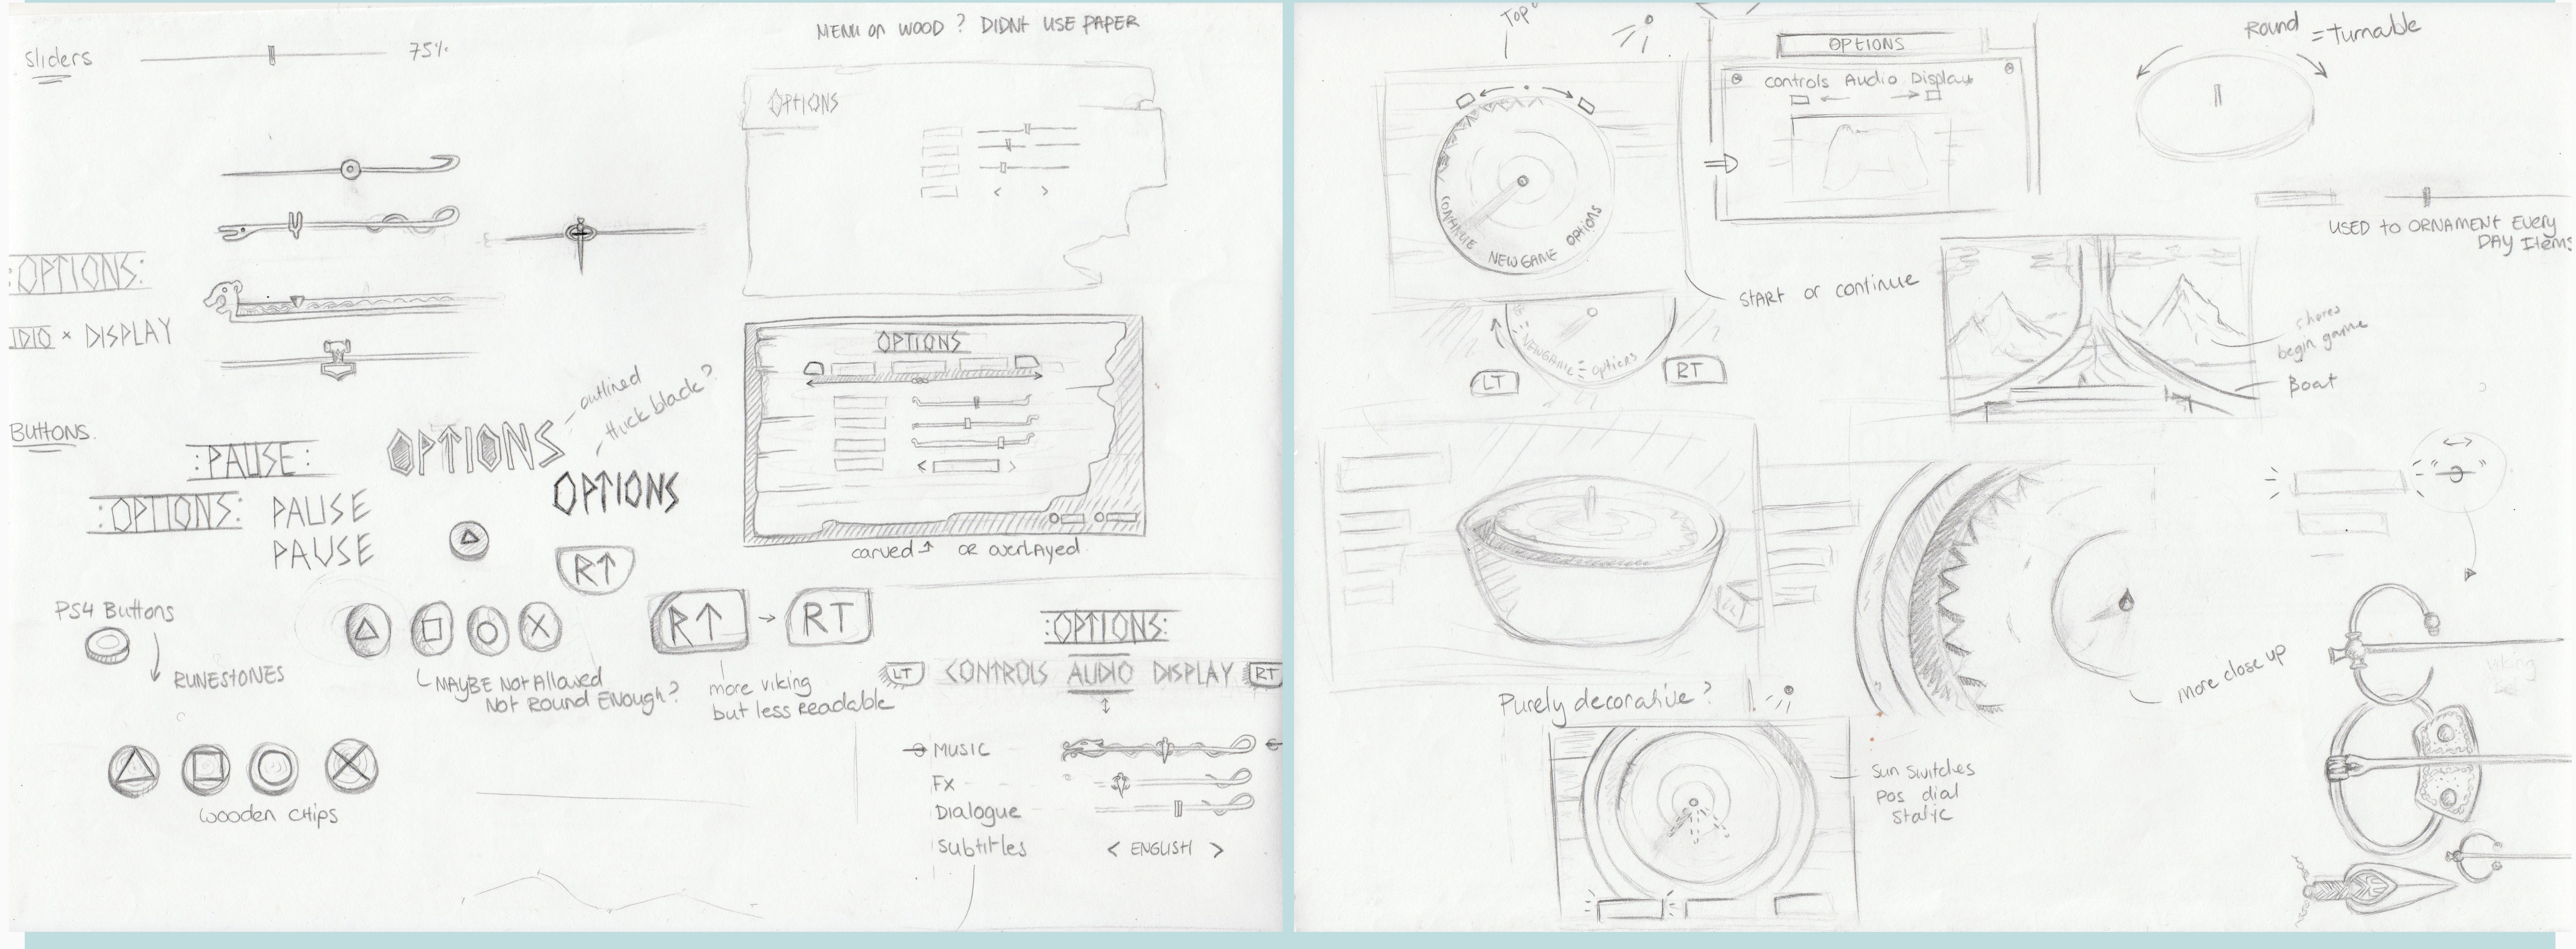 MENU on WOOD ? DIDNt USE PAPER
Sliders
75%
OPTIONS
:OPTIONS:
DIO × DISPLAY
outlined
thick black?
OPTIONS
carved ↑ OR overLAyed
BUttONS.
:PAUSE:
OPTIONS
:OPTIONS:
PAUSE
PAUSE
OPTIONS
R↑
PS4 Buttons
RUNEStONES
MAYBE Not Allowed
Not Round Enough?
R↑ → RT
more viking
but less Readable
:OPTIONS:
LT CONTROLS AUDIO DISPLAY RT
MUSIC
FX
Dialogue
Subtitles
< ENGLISH >
wooden CHips
Top
OPTIONS
controls Audio Display
Round = turnable
CONTINUE NEW GAME OPTIONS
START or continue
NEWGAME options
LT
RT
USED to ORNAMENT Every
DAY Items
shores
begin game
Boat
more close up
Purely decorative?
Sun Switches
pos dial
static